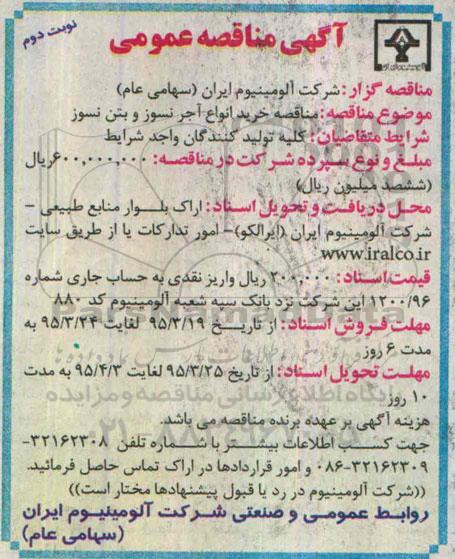 نوبت دوم
آگهی مناقصه عمومی
مناقصه گزار: شرکت آلومینیوم ایران (سهامی عام)
موضوع مناقصه: مناقصه خرید انواع آجر نسوز و بتن نسوز
شرایط متقاضیان: کلیه تولید کنندگان واجد شرایط
مبلغ و نوع سپرده شرکت در مناقصه: ۶۰۰,۰۰۰,۰۰۰ ریال
(ششصد میلیون ریال)
محل دریافت و تحویل اسناد: اراک بلوار منابع طبیعی -
شرکت آلومینیوم ایران (ایرالکو)- امور تدارکات یا از طریق سایت
www.iralco.ir
قیمت اسناد: ۲۰۰,۰۰۰ ریال واریز نقدی به حساب جاری شماره
۱۲۰۰/۹۶ این شرکت نزد بانک سپه شعبه آلومینیوم کد ۸۸۰
مهلت فروش اسناد: از تاریخ ۹۵/۳/۱۹ لغایت ۹۵/۳/۲۴ به
مدت ۶ روز
مهلت تحویل اسناد: از تاریخ ۹۵/۳/۲۵ لغایت ۹۵/۴/۳ به مدت
۱۰ روز
هزینه آگهی بر عهده برنده مناقصه می باشد.
جهت کسب اطلاعات بیشتر با شماره تلفن ۳۲۱۶۲۳۰۸-
۰۸۶-۳۲۱۶۲۳۰۹ و امور قراردادها در اراک تماس حاصل فرمائید.
((شرکت آلومینیوم در رد یا قبول پیشنهادها مختار است))
روابط عمومی و صنعتی شرکت آلومینیوم ایران
(سهامی عام)